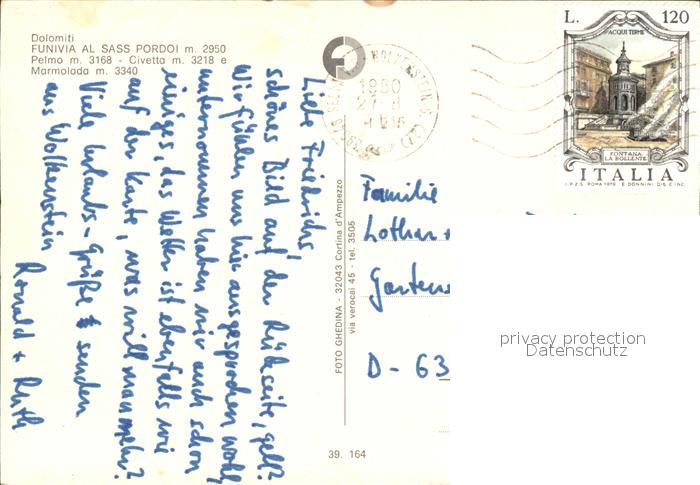 Dolomiti
FUNIVIA AL SASS PORDOI m. 2950
Pelmo m. 3168 - Civetta m. 3218 e
Marmolada m. 3340
Liebe Friedrichs,
schönes Bild auf der Rückseite, gell?
Wir fühlen uns hier ausgesprochen wohl,
unternommen haben wir auch schon
einiges, das Wetter ist ebenfalls wie
auf der Karte, was will man mehr?
Viele Urlaubs-Grüße senden
aus Wolkenstein
Ronald + Ruth
FOTO GHEDINA - 32043 Cortina d'Ampezzo
via verocai 45 - tel. 3505
39. 164
WOLKENSTEIN
1980
27. 8
L. 120
ACQUI TERME
FONTANA
LA BOLLENTE
ITALIA
I.P.Z.S. ROMA 1979 E. DONNINI DIS. E INC.
Familie
Lothar +
Gartens
D - 63
privacy protection
Datenschutz